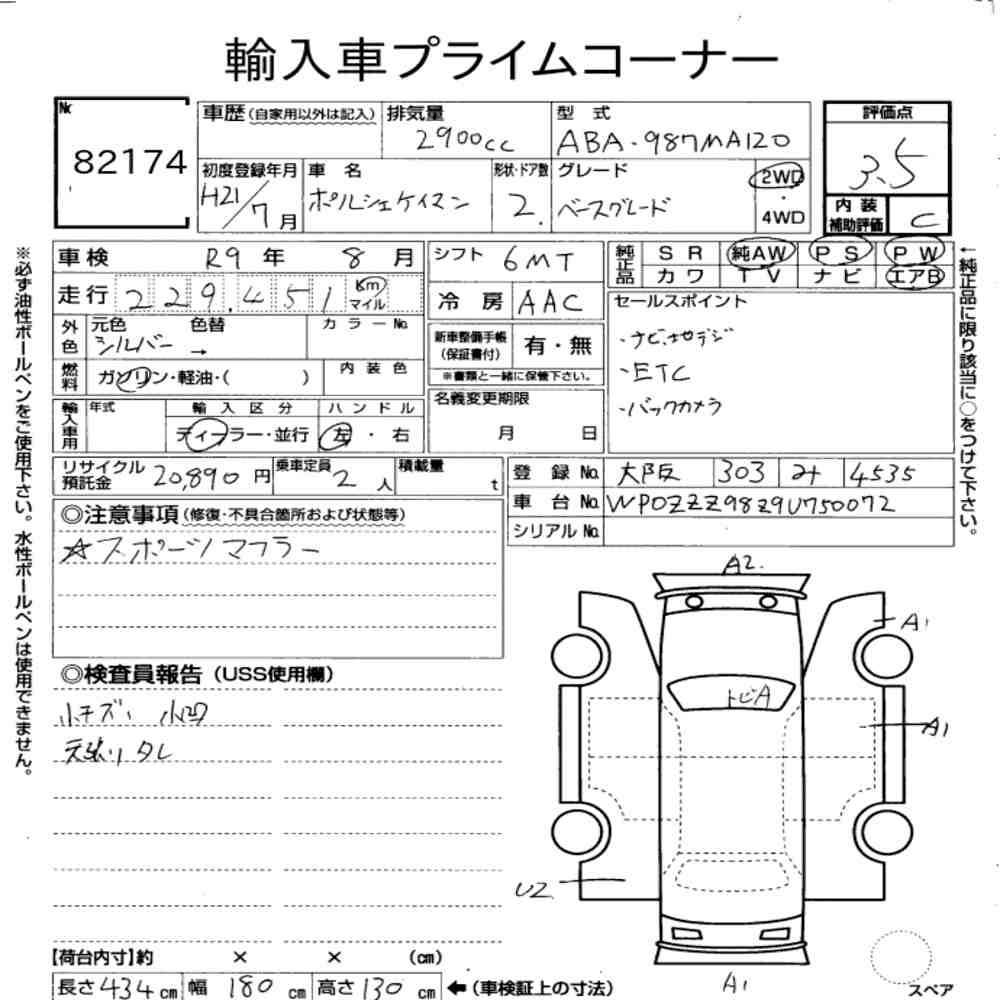 輸入車プライムコーナー
№ 82174
車歴(自家用以外は記入)
排気量 2900cc
型式 ABA-987MA120
評価点 3.5
初度登録年月 H21/7月
車名 ポルシェケイマン
形状・ドア数 2.
グレード ベースグレード
2WD・4WD
内装補助評価 C
車検 R9年 8月
シフト 6MT
純正品 SR 純AW PS PW
カワ TV ナビ エアB
走行 229,451 Km マイル
冷房 AAC
セールスポイント
・ナビ.地デジ
・ETC
・バックカメラ
外色 元色 シルバー → 色替 カラーNo.
新車整備手帳(保証書付) 有・無
※書類と一緒に保管下さい。
燃料 ガソリン・軽油・( ) 内装色
名義変更期限 月 日
輸入車用 年式 輸入区分 ハンドル
ディーラー・並行 左・右
リサイクル預託金 20,890円
乗車定員 2人
積載量 t
登録No. 大阪 303 み 4535
車台No. WP0ZZZ98Z9U750072
シリアルNo.
◎注意事項(修復・不具合箇所および状態等)
☆スポーツマフラー
◎検査員報告(USS使用欄)
小キズ、小凹
天張りタレ
A2.
A1
トビA
A1
U2
A1
スペア
【荷台内寸】約 × × (cm)
長さ434cm 幅180cm 高さ130cm ←(車検証上の寸法)
※必ず油性ボールペンをご使用下さい。水性ボールペンは使用できません。
←純正品に限り該当に○をつけて下さい。